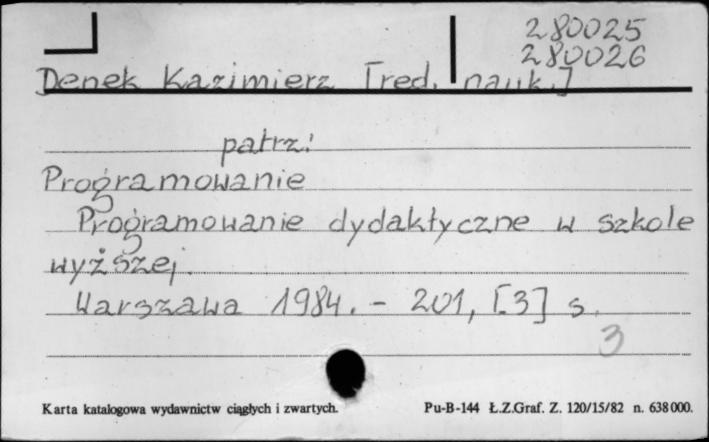 280025
280026
Denek Kazimierz [red. nauk.]
patrz:
Programowanie
Programowanie dydaktyczne w szkole
wyższej.
Warszawa 1984. - 201, [3] s.
3
Karta katalogowa wydawnictw ciągłych i zwartych. Pu-B-144 Ł.Z.Graf. Z. 120/15/82 n. 638000.